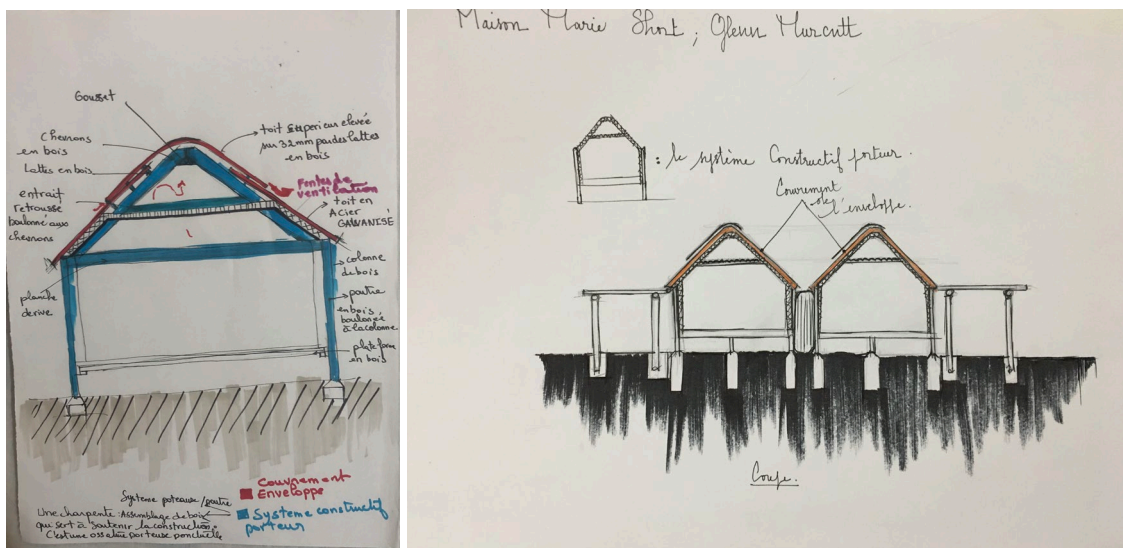 Gousset
Chevrons
en bois
Lattes en bois
entrait
retrousse
boulonné aux
chevrons
planche
de rive
toit supérieur elevée
sur 32mm par des lattes
en bois
Fentes de
ventilation
toit en
Acier
GALVANISÉ
colonne
de bois
poutre
en bois,
boulonnée
à la colonne
plateforme
en bois
Couvrement
Enveloppe
Système constructif
porteur
Systeme poteaux/poutre
Une charpente : Assemblage de bois
qui sert à soutenir la construction.
C'est une ossature porteuse ponctuelle
Maison Marie Short ; Glenn Murcutt
: le système Constructif porteur.
Couvrement
de
l'enveloppe.
Coupe.